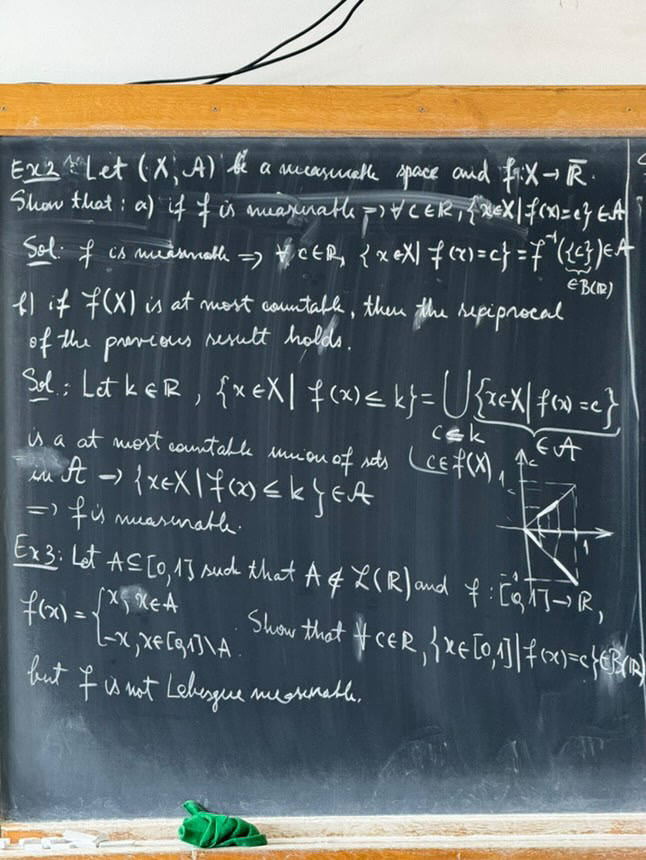 Ex2: Let (X, A) be a measurable space and f: X → R̅.
Show that: a) if f is measurable ⇒ ∀ c∈R, {x∈X | f(x)=c} ∈ A
Sol: f is measurable ⇒ ∀ c∈R, {x∈X | f(x)=c} = f⁻¹({c}) ∈ A
∈B(R)
b) if f(X) is at most countable, then the reciprocal
of the previous result holds.
Sol.: Let k∈R, {x∈X | f(x) ≤ k} = ⋃ {x∈X | f(x)=c}
c≤k
∈A
c∈f(X)
is a at most countable union of sets
in A → {x∈X | f(x) ≤ k} ∈ A
⇒ f is measurable.
c
1
1
-1
Ex3: Let A⊆[0,1] such that A ∉ L(R) and f: [0,1] → R,
f(x) = { x, x∈A
-x, x∈[0,1]\A. Show that ∀ c∈R, {x∈[0,1] | f(x)=c} ∈ B(R)
but f is not Lebesgue measurable.